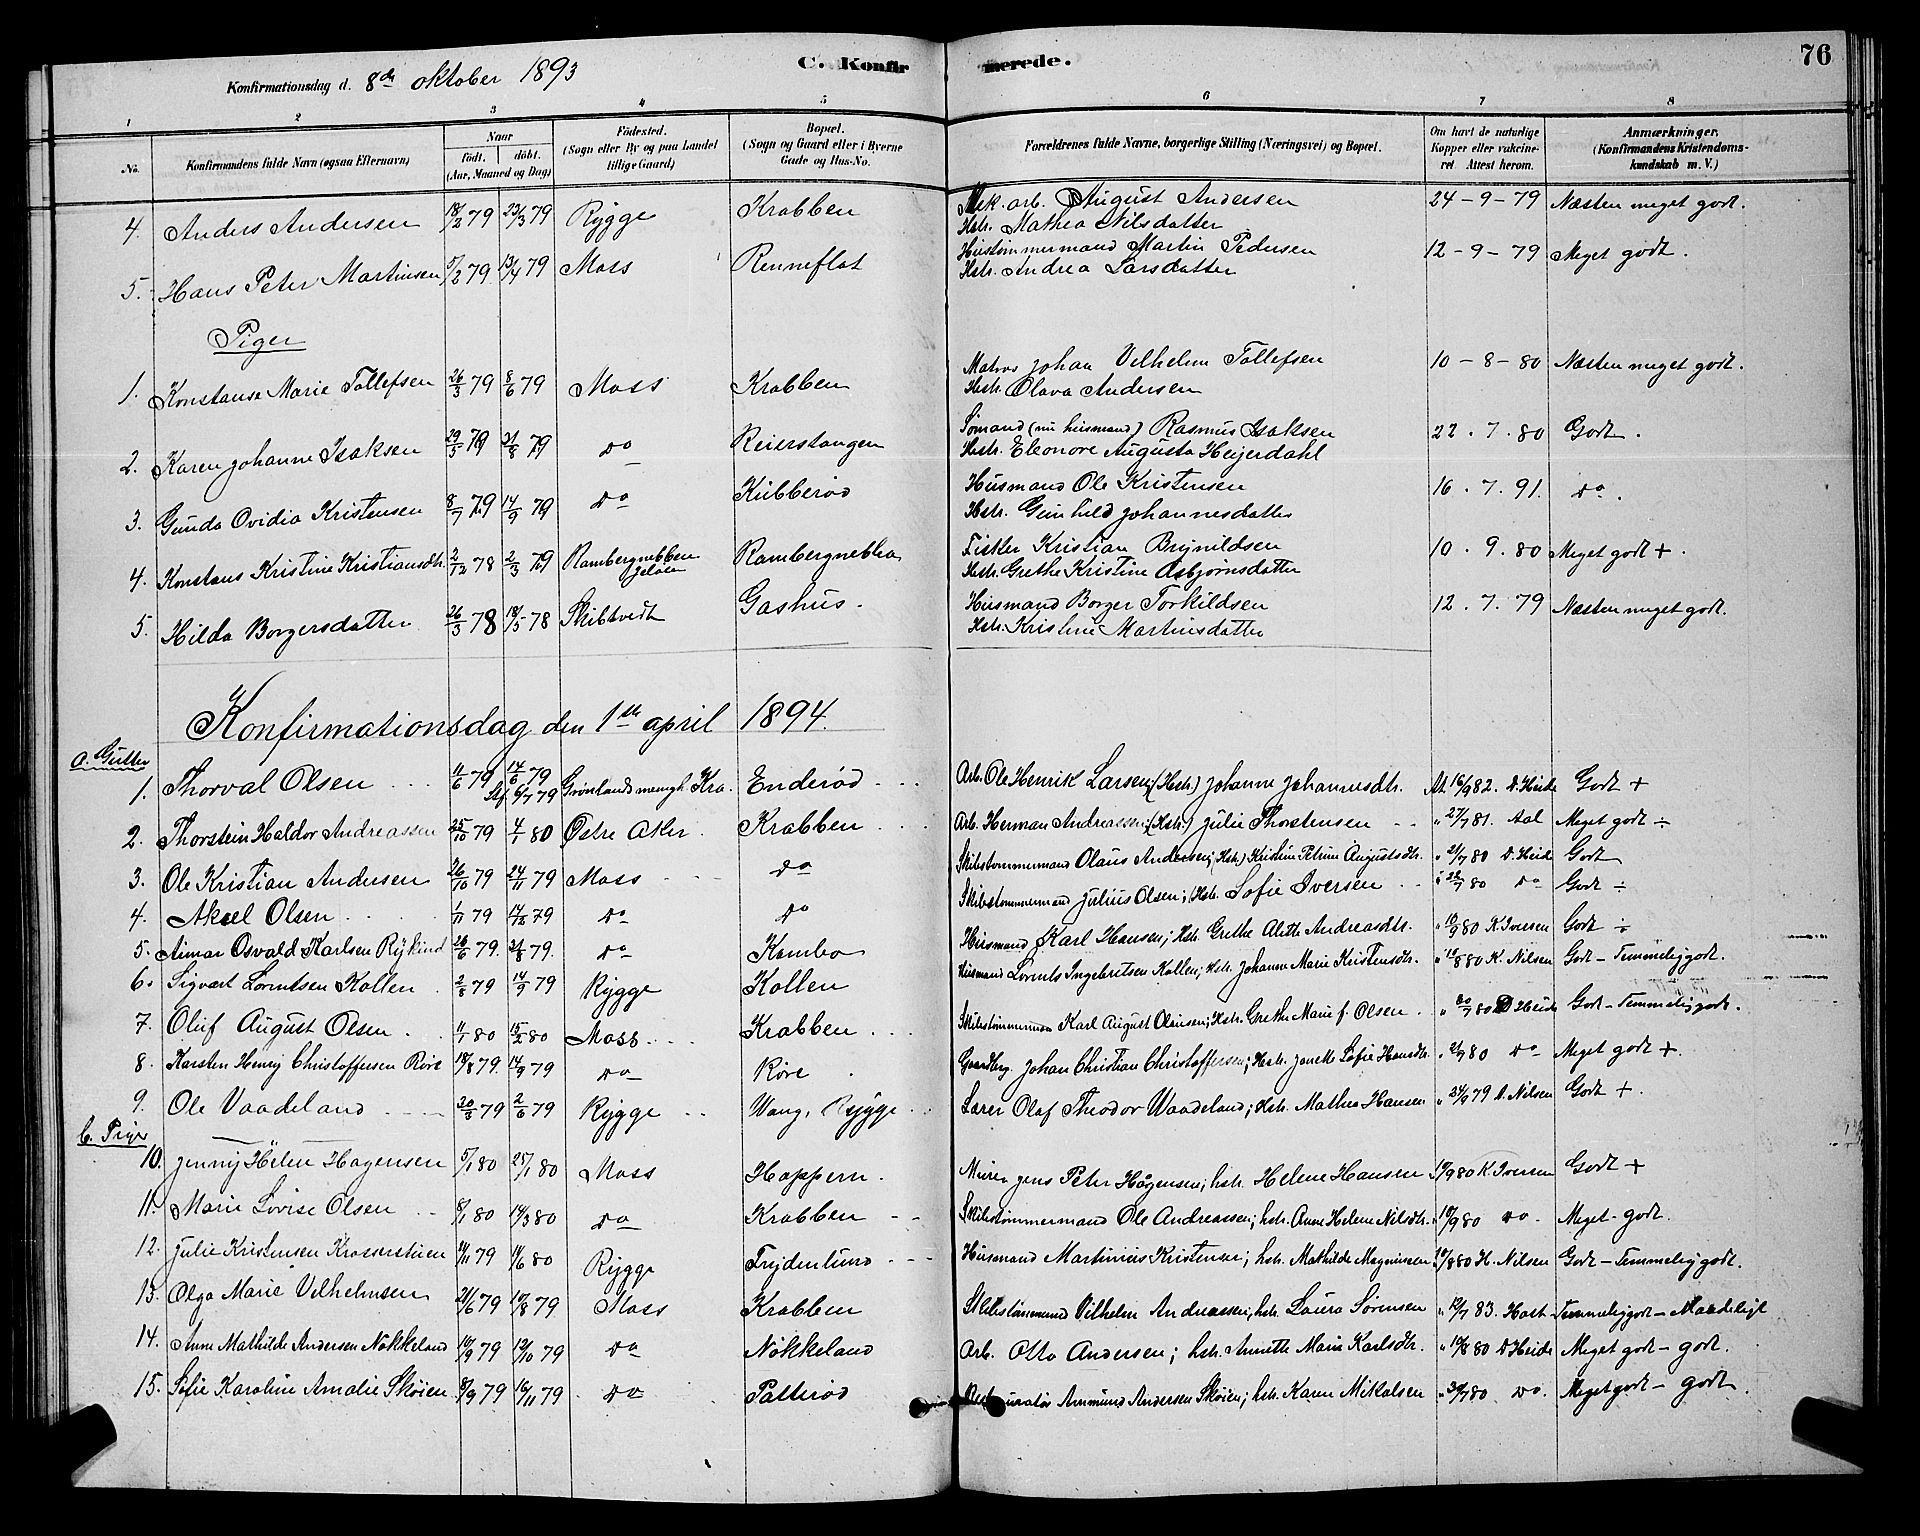 C. Konfirmerede.
76
Konfirmationsdag d. 8de oktober 1893
1 2 3 4 5 6 7 8
No. Konfirmandens fulde Navn (ogsaa Efternavn) Naar født. døbt. (Aar, Maaned og Dag) Fødested. (Sogn eller By og paa Landet tillige Gaard) Bopæl. (Sogn og Gaard eller i Byerne Gade og Hus-No. Forældrenes fulde Navne, borgerlige Stilling (Næringsvei) og Bopæl. Om havt de naturlige Kopper eller vakcineret Attest herom. Anmærkninger. (Konfirmandens Kristendomskundskab m. V.)
4. Anders Andersen 18/2 79 23/3 79 Rygge Krabben Mek. arb. August Andersen 24-9-79 Næsten meget godt.
Hstr. Mathea Nilsdatter
5. Hans Peter Martinsen 5/2 79 13/4 79 Moss Renneflot Hustømmermand Martin Pedersen 12-9-79 Meget godt.
Hstr. Andrea Larsdatter
Piger
1. Konstanse Marie Tollefsen 26/3 79 8/6 79 Moss Krabben Matros Johan Vilhelm Tollefsen 10-8-80 Næsten meget godt.
Hstr. Olava Andersen
2. Karen Johanne Isaksen 29/5 79 31/8 79 do Reierstangen Sømand (nu husmand) Rasmus Isaksen 22.7.80 Godt.
Hstr. Eleonore Augusta Heijerdahl
3. Gunda Ovidia Kristensen 8/7 79 14/9 79 do Kubberød Husmand Ole Kristensen 16.7.91. do.
Hstr. Gunhild Johannesdatter
4. Konstans Kristine Kristiansdtr. 2/12 78 2/3 79 Rambergnebben Jeløen Rambergnebben Fisker Kristian Brynildsen 10.9.80 Meget godt +.
Hstr. Grethe Kristine Asbjørnsdatter
5. Hilda Borgersdatter 26/3 78 18/5 78 Skibtvedt Gashus. Husmand Borger Torkildsen 12.7.79 Næsten meget godt.
Hstr. Kristine Martinsdatter
Konfirmationsdag den 1ste april 1894.
a. Gutter
1. Thorval Olsen 11/6 79 14/6 79 Stf. 6/7 79 Grønlands menigh. Kra. Enderød Arb. Ole Henrik Larsen; (Hstr.) Johanne Johannesdtr. At. 16/9 82. D. Heide Godt +
2. Thorstein Haldor Andreassen 25/10 79 4/1 80 Østre Aker. Krabben Arb. Herman Andreassen; (Hstr.) Julie Thorstensen " 27/7 81. Aal Meget godt ÷
3. Ole Kristian Andersen 26/10 79 24/11 79 Moss do Skibstømmermand Olaus Andersen; (Hstr.) Kristine Petrine Augustsdtr. " 21/7 80 D. Heide Godt
4. Aksel Olsen 1/11 79 14/12 79 do do Skibstømmermand Julius Olsen; (Hstr. Sofie Iversen " 22/7 80 do Godt ÷
5. Aimar Osvald Karlsen Rykind 26/6 79. 31/8 79. do Kambo Husmand Karl Hansen; Hstr. Grethe Alette Andreasdtr. " 10/9 80 K. Iversen Godt ÷
6. Sigvart Lorentsen Kollen 2/8 79 14/9 79 Rygge Kollen Husmand Lorents Ingebretsen Kollen; Hstr. Johanne Marie Kristensdtr. " 10/8 80 K. Nilsen Godt - Temmelig godt.
7. Oluf August Olsen 11/1 80 15/2 80 Moss Krabben Skibstømmerman Karl August Olausen; Hstr. Grethe Marie f. Olsen " 20/7 80 D Heide Godt - Temmelig godt.
8. Karsten Henry Christoffersen Røre 18/8 79. 14/9 79 do Røre Gaardbrg. Johan Christian Christoffersen; Hstr. Janette Sofie Hansdtr. " 21/7 80 do Meget godt +.
9. Ole Vaadeland 20/3 79 2/6 79 Rygge Wang, Rygge Lærer Olaf Theodor Waadeland; Hstr. Mathea Hansen " 24/9 79 A. Nilsen Godt +.
b. Piger
10. Jenny Helen Hagensen 5/1 80 25/1 80 Moss Hoppern. Murer Jens Peter Hågensen; hstr. Helene Hansen " 17/9 80 K. Iversen Godt +
11. Marie Lovise Olsen 8/1 80 14/3 80 do Krabben Skibstømmermand Ole Andreassen; hstr. Anne Helene Nilsdtr. " 10/9 80 do. Meget - godt.
12. Julie Kristensen Krosserstuen 11/11 79 11/6 80 Rygge Frydenlund Husmand Martinius Kristensen; hstr. Mathilde Magnussen " 17/8 80 H. Nilsen Godt - Temmelig godt.
13. Olga Marie Vilhelmsen 21/6 79 17/8 79 Moss Krabben Skibstømmermand Vilhelm Andreassen; hstr. Laura Sørensen " 19/7 83. Hast Temmelig godt - Maadeligt
14. Anne Mathilde Andersen Nøkkeland 10/9 79 12/10 79 do Nøkkeland Arb. Otto Andersen; hstr. Annette Marie Karlsdtr. " 10/8 80 D Heide Meget godt - godt.
15. Sofie Karoline Amalie Skøien 8/9 79 16/11 79 do Patterød Anmund Andersen Skøien; hstr. Karen Mikalsen " 30/7 80 do. Meget godt - godt.